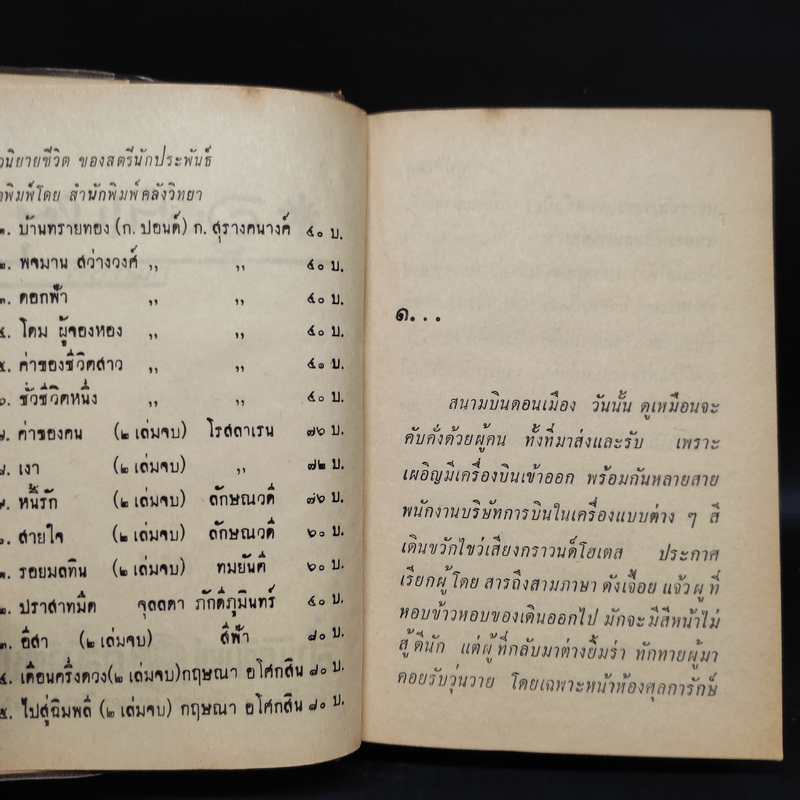 วนิยายชีวิต ของสตรีนักประพันธ์
ดพิมพ์โดย สำนักพิมพ์คลังวิทยา
๑. บ้านทรายทอง (ก. ปอนด์) ก. สุรางคนางค์ ๔๐ บ.
๒. พจมาน สว่างวงศ์ ,, ,, ๔๐ บ.
๓. ดอกฟ้า ,, ,, ๔๐ บ.
๔. โดม ผู้จองหอง ,, ,, ๔๐ บ.
๕. ค่าของชีวิตสาว ,, ,, ๔๐ บ.
๖. ชั่วชีวิตหนึ่ง ,, ,, ๔๐ บ.
๗. ค่าของคน (๒ เล่มจบ) โรสลาเรน ๗๖ บ.
๘. เงา (๒ เล่มจบ) ,, ๗๒ บ.
๙. หนี้รัก (๒ เล่มจบ) ลักษณวดี ๗๖ บ.
๐. สายใจ (๒ เล่มจบ) ลักษณวดี ๖๐ บ.
๑. รอยมลทิน (๒ เล่มจบ) ทมยันตี ๖๐ บ.
๒. ปราสาทมืด จุลลดา ภักดีภูมินทร์ ๔๐ บ.
๓. อีสา (๒ เล่มจบ) สีฟ้า ๘๐ บ.
๔. เดือนครึ่งดวง(๒ เล่มจบ)กฤษณา อโศกสิน ๘๐ บ.
๕. ไปสู่ฉิมพลี (๒ เล่มจบ) กฤษณา อโศกสิน ๘๐ บ.
๑...
สนามบินดอนเมือง วันนั้น ดูเหมือนจะ
คับคั่งด้วยผู้คน ทั้งที่มาส่งและรับ เพราะ
เผอิญมีเครื่องบินเข้าออก พร้อมกันหลายสาย
พนักงานบริษัทการบินในเครื่องแบบต่าง ๆ สี
เดินขวักไขว่เสียงกราวนด์โฮเตส ประกาศ
เรียกผู้โดย สารถึงสามภาษา ดังเจื้อย แจ้ว ผู้ที่
หอบข้าวหอบของเดินออกไป มักจะมีสีหน้าไม่
สู้ดีนัก แต่ผู้ที่กลับมาต่างยิ้มร่า ทักทายผู้มา
คอยรับวุ่นวาย โดยเฉพาะหน้าห้องศุลการักษ์